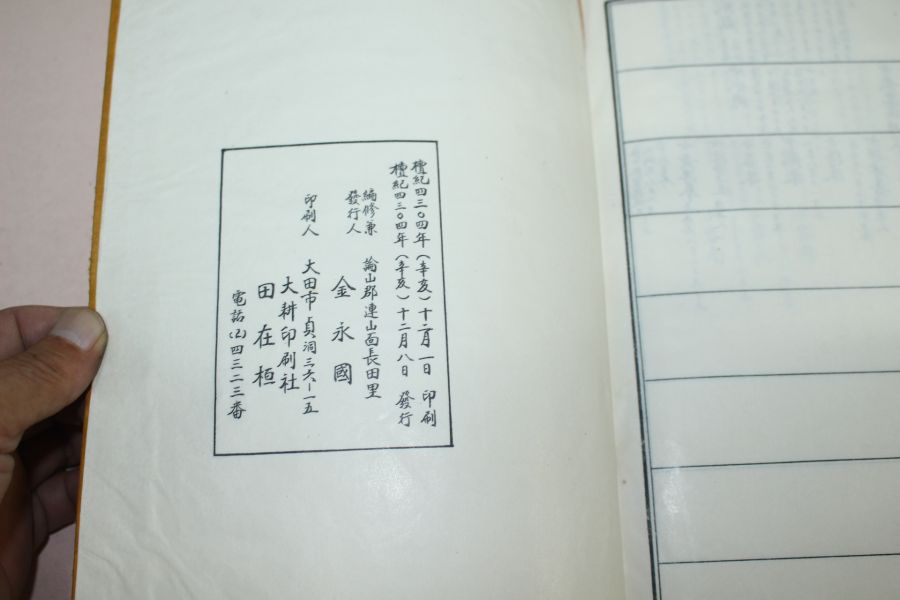 檀紀四三〇四年(辛亥)十二月一日 印刷
檀紀四三〇四年(辛亥)十二月八日 發行
編修兼
發行人
論山郡連山面長田里
金永國
印刷人
大田市貞洞三六八一五
大耕印刷社
田在桓
電話(2)四三二三番